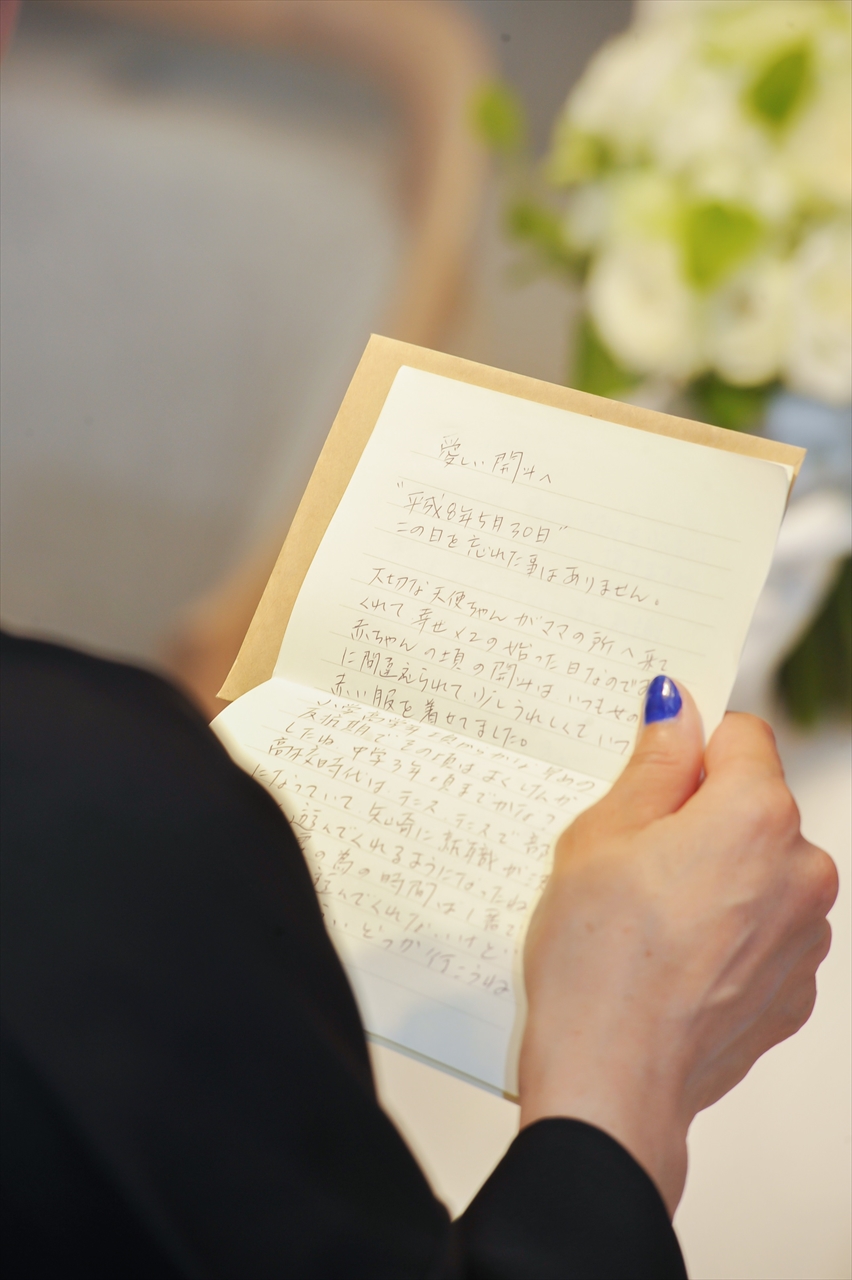 愛しい 開斗へ
"平成8年5月30日"
この日を忘れた事はありません。
大切な天使ちゃんがママの所へ来て
くれて 幸せ×2の始った日なので
赤ちゃんの頃の開斗は いつも女の
に間違えられて 少しうれしくて いつ
赤い服を着せてました。
反抗期で その頃はよくけんか
したね 中学3年 頃まで
高校時代は テニス テニスで 部
になっていて 矢崎に就職が決
遊んでくれるようになったね
の為の時間は 1番で
遊んでくれないけど
どっか行こうね